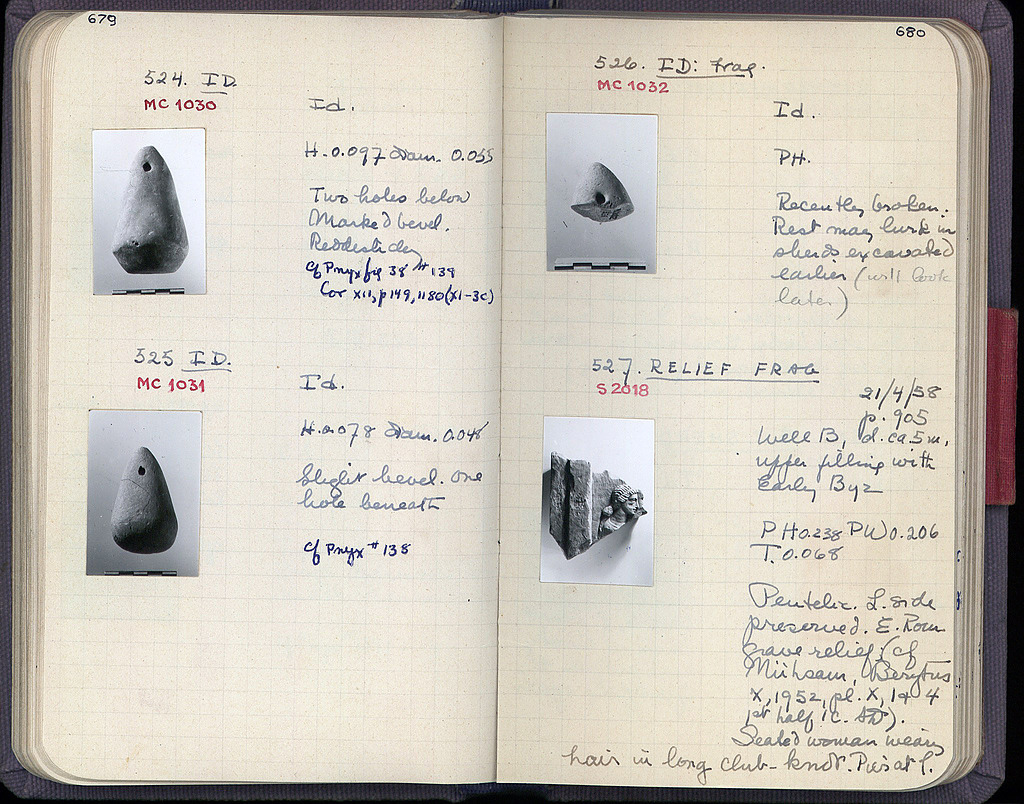 679
524. ID.
MC 1030
Id.
H. 0.097 Diam. 0.055
Two holes below
Marked bevel.
Reddish clay
cf Pnyx fig 38 # 139
Cor XII, p 149, 1180 (XI-3c)
525 ID.
MC 1031
Id.
H. 0.078 Diam. 0.048
Slight bevel. One
hole beneath
cf Pnyx # 138
680
526. ID: Frag.
MC 1032
Id.
PH.
Recently broken.
Rest may lurk in
sherds excavated
earlier (will look
later)
527. RELIEF FRAG
S 2018
21/4/58
p. 905
Well B, d. ca 5 m,
upper filling with
Early Byz
PH 0.238 PW 0.206
T. 0.068
Pentelic. L. side
preserved. E. Rom
grave relief (cf
Mühsam, Berytus
X, 1952, pl. X, 1 + 4
1st half 1 c. AD).
Seated woman wears
hair in long club-knot. Piers at l.